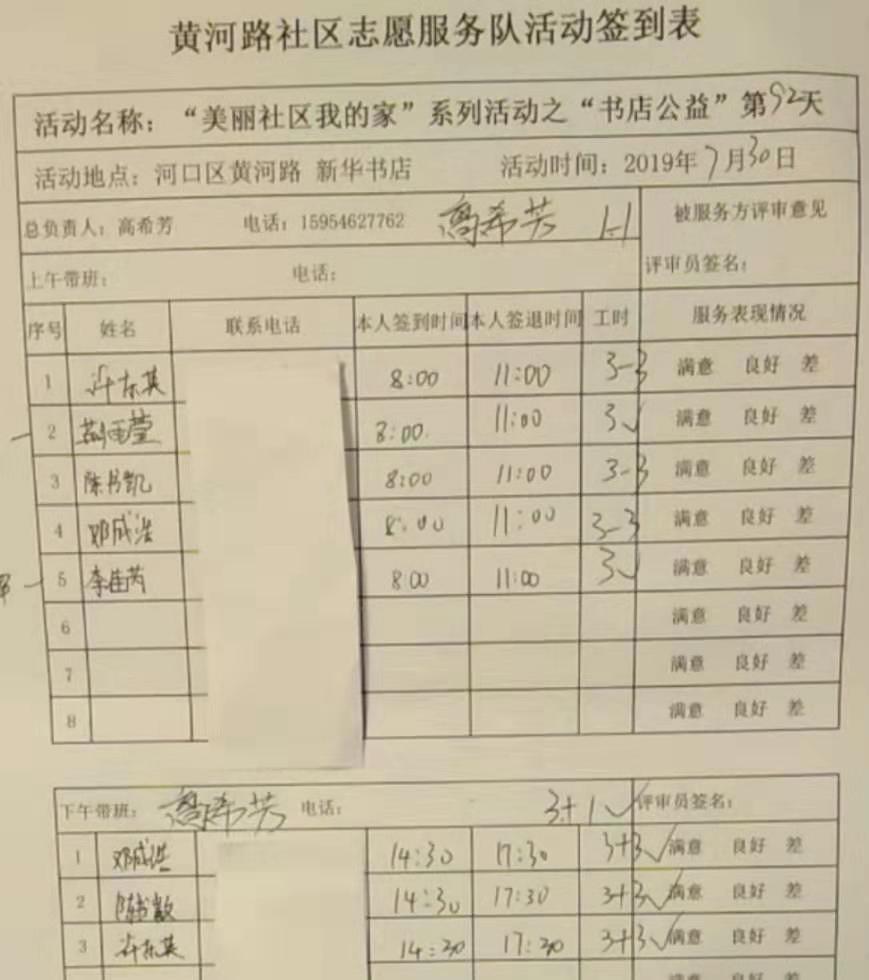 黄河路社区志愿服务队活动签到表
活动名称：“美丽社区我的家”系列活动之“书店公益”第92天
活动地点：河口区黄河路 新华书店 活动时间：2019年7月30日
总负责人：高希芳 电话：15954627762 高希芳 1-1 被服务方评审意见
上午带班： 电话： 评审员签名：
序号 姓名 联系电话 本人签到时间 本人签退时间 工时 服务表现情况
1 许东英 8:00 11:00 3-3 满意 良好 差
2 8:00 11:00 3✓ 满意 良好 差
3 陈书凯 8:00 11:00 3-3 满意 良好 差
4 邓成浩 8:00 11:00 3-3 满意 良好 差
5 李佳芮 8:00 11:00 3✓ 满意 良好 差
6 满意 良好 差
7 满意 良好 差
8 满意 良好 差
下午带班： 高希芳 电话： 3+1✓ 评审员签名：
1 邓成浩 14:30 17:30 3+3✓ 满意 良好 差
2 14:30 17:30 3+3✓ 满意 良好 差
3 许东英 14:30 17:30 3+3✓ 满意 良好 差
满意 良好 差